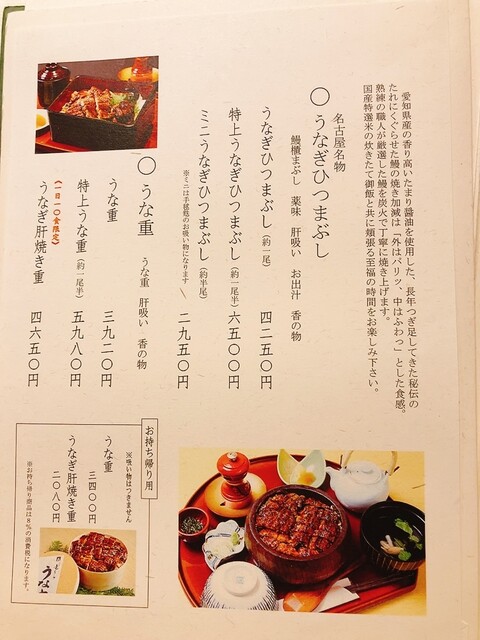 愛知県産の香り高いたまり醤油を使用した、長年つぎ足してきた秘伝の
たれにくぐらせた鰻の焼き加減は「外はパリッ、中はふわっ」とした食感。
熟練の職人が厳選した鰻を炭火で丁寧に焼き上げます。
国産特選米の炊きたて御飯と共に頬張る至福の時間をお楽しみ下さい。
名古屋名物
〇うなぎひつまぶし
鰻櫃まぶし 薬味 肝吸い お出汁 香の物
うなぎひつまぶし(約一尾) 四二五〇円
特上うなぎひつまぶし(約一尾半) 六五〇〇円
ミニうなぎひつまぶし(約半尾) 二九五〇円
※ミニは手毬麩のお吸い物になります
〇うな重 うな重 肝吸い 香の物
うな重 三九二〇円
特上うな重(約一尾半) 五九八〇円
(一日一〇食限定)
うなぎ肝焼き重 四六五〇円
お持ち帰り用
※吸い物はつきません
うな重 三四〇〇円
うなぎ肝焼き重 二〇八〇円
※お持ち帰り商品は8%の消費税になります。
うな